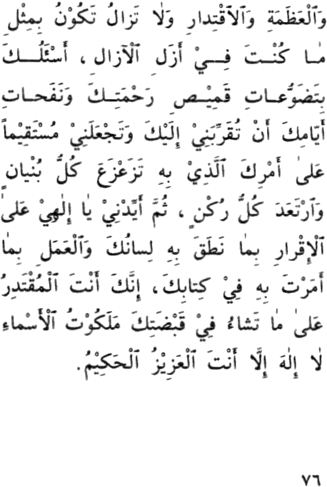 وَٱلْعَظَمَةِ وَٱلْاقْتِدارِ وَلٰا تَزالُ تَكُوْنُ بِمِثْلِ
مٰا كُنْتَ فِيْ أَزَلِ ٱلْآزالِ، أَسْئَلُكَ
بِتَضَوُّعاتِ قَمِيْصِ رَحْمَتِكَ وَنَفَحاتِ
أَيّامِكَ أَنْ تُقَرِّبَنِيْ إِلَيْكَ وَتَجْعَلَنِيْ مُسْتَقِيْماً
عَلىٰ أَمْرِكَ ٱلَّذِيْ بِهِ تَزَعْزَعَ كُلُّ بُنْيانٍ
وَٱرْتَعَدَ كُلُّ رُكْنٍ، ثُمَّ أَيِّدْنِيْ يٰا إِلٰهِيْ عَلىٰ
ٱلْإِقْرارِ بِمٰا نَطَقَ بِهِ لِسانُكَ وَٱلْعَمَلِ بِمٰا
أَمَرْتَ بِهِ فِيْ كِتابِكَ، إِنَّكَ أَنْتَ ٱلْمُقْتَدِرُ
عَلىٰ مٰا تَشاءُ فِيْ قَبْضَتِكَ مَلَكُوْتُ ٱلْأَسْماءِ
لٰا إِلٰهَ إِلَّا أَنْتَ ٱلْعَزِيْزُ ٱلْحَكِيْمُ.
٧٦